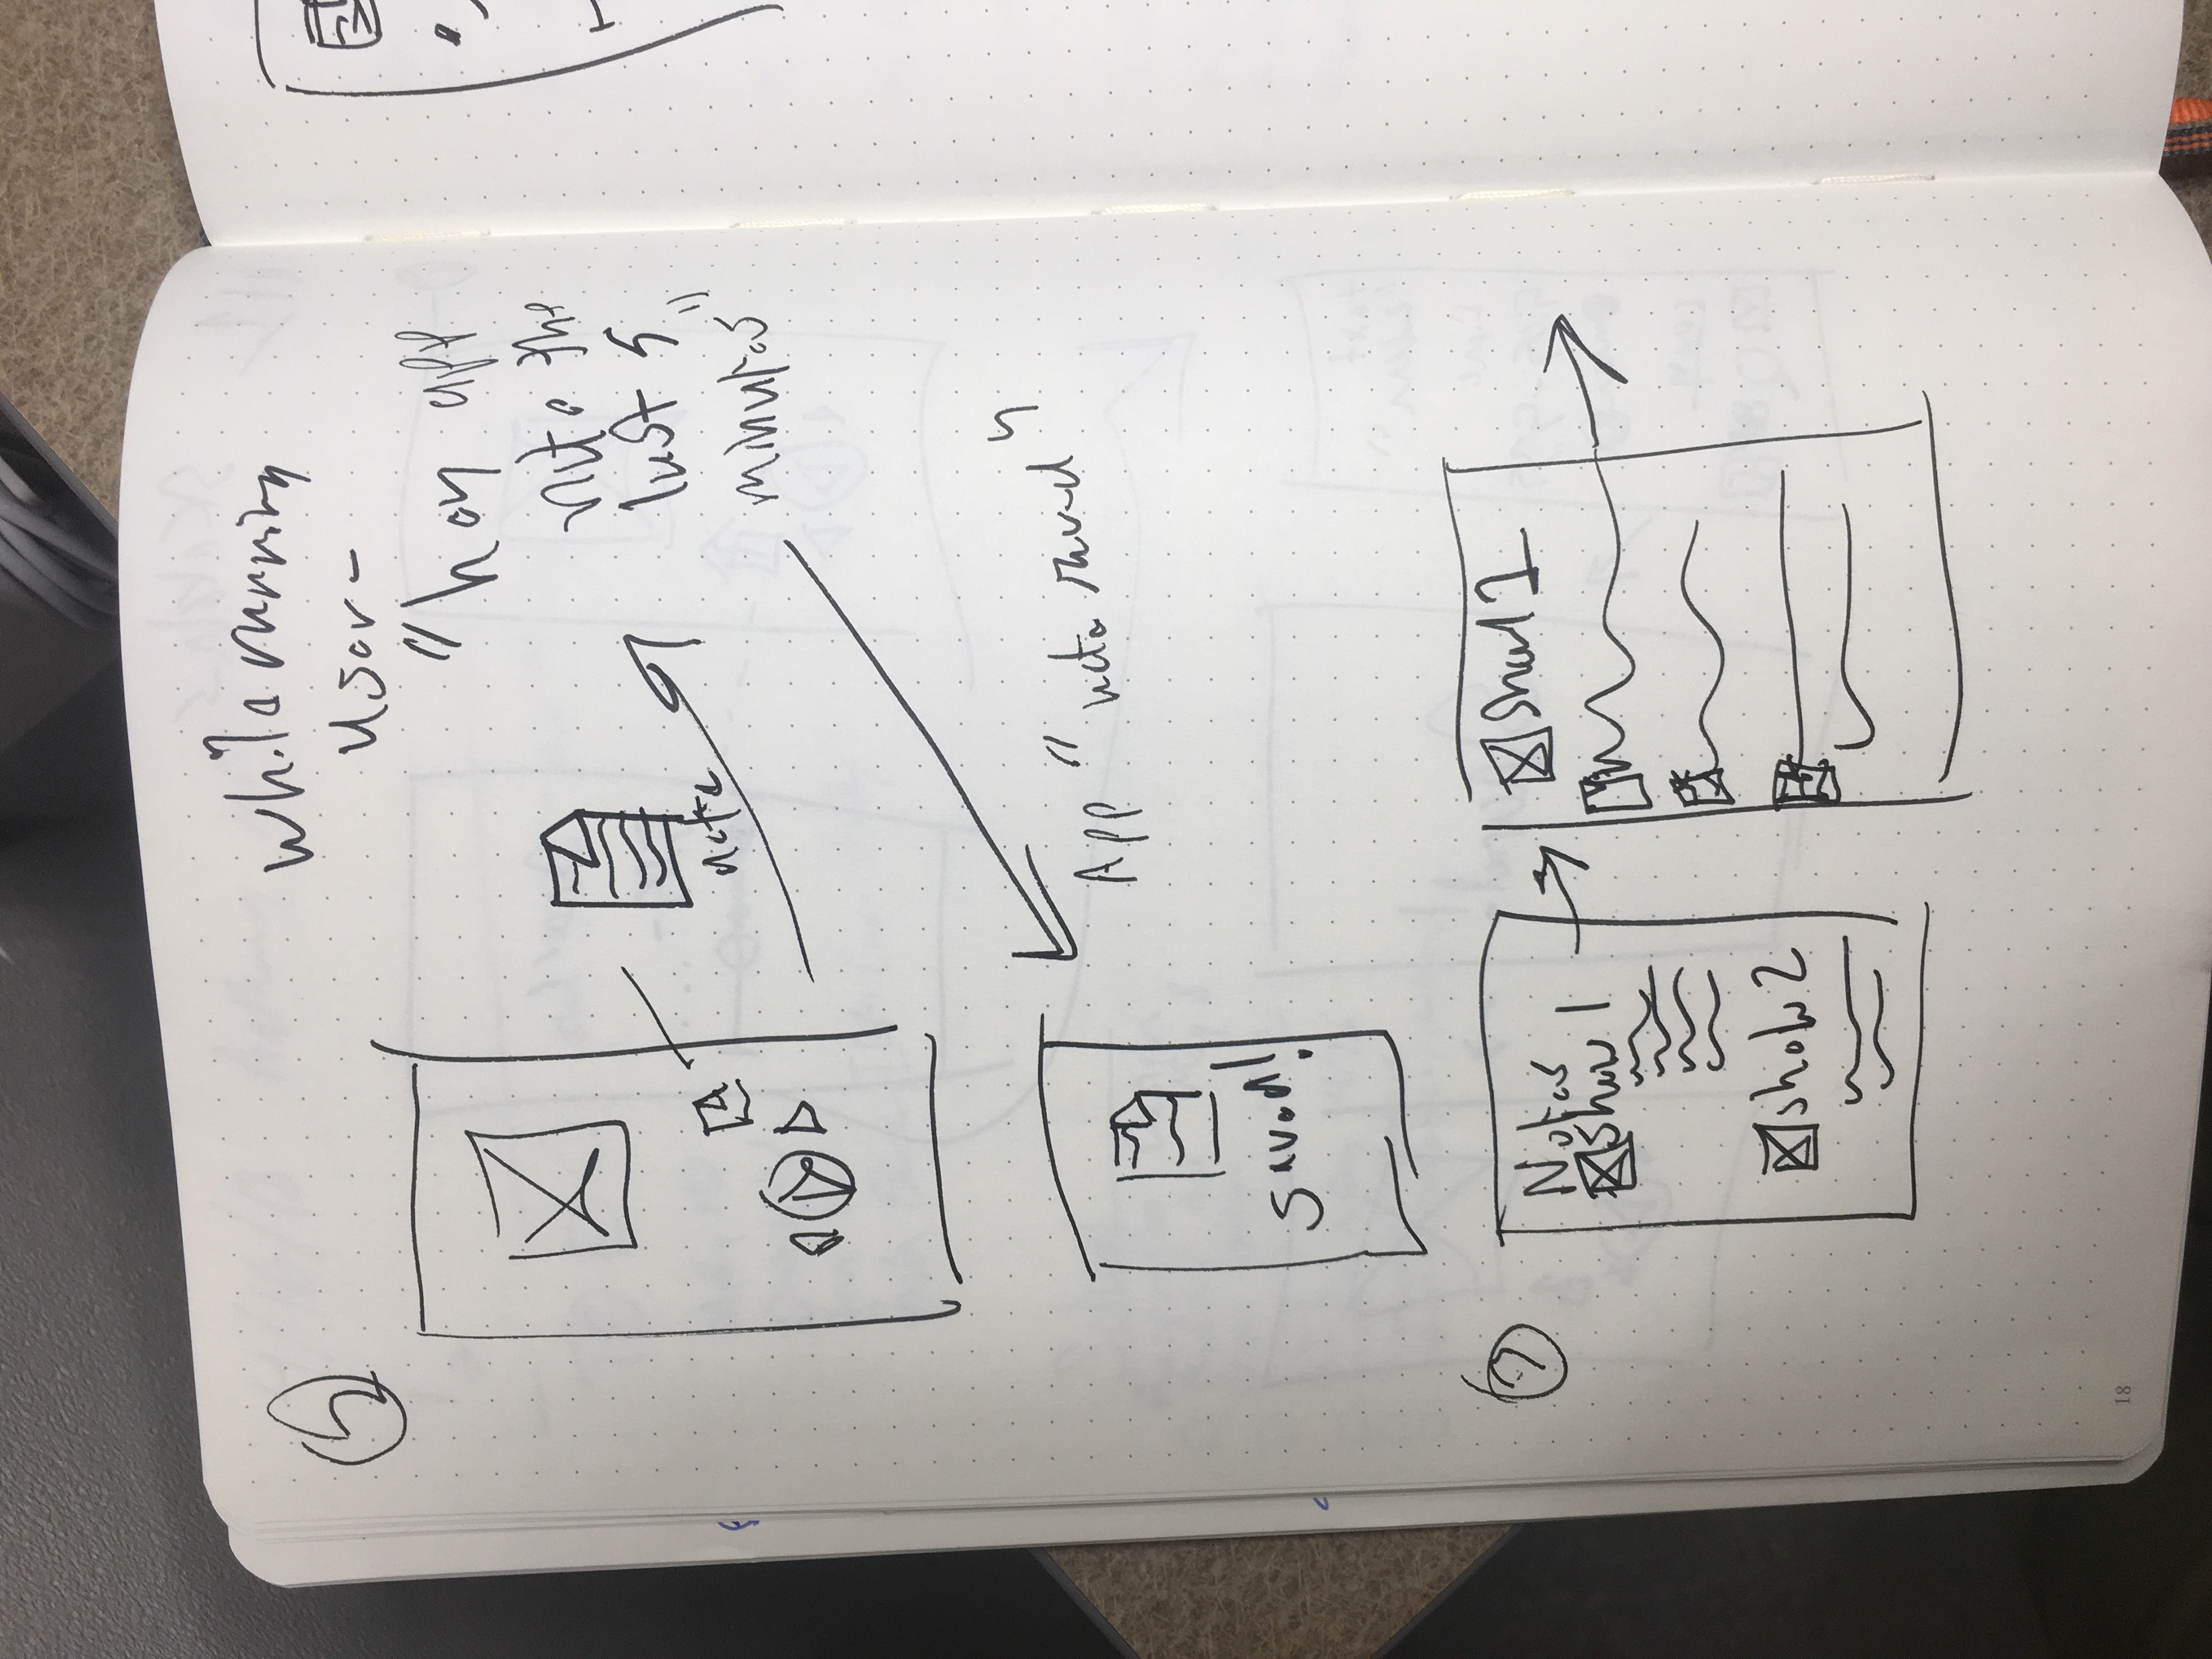 while running
user -
"hey app
note the
last 5
minutes"
note
App "note saved"
saved!
Notes
Show 1
Show 2
Show 1
18